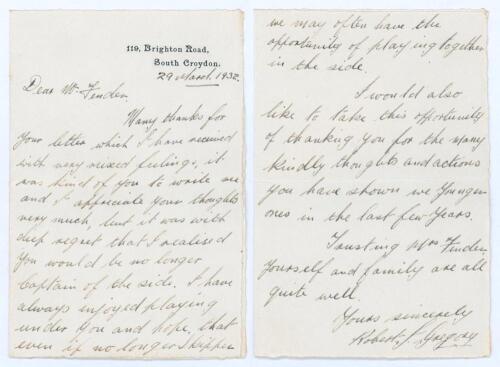 119, Brighton Road,
South Croydon.
29 March. 1932.
Dear Mr Fender
Many thanks for
your letter which I have received
with very mixed feelings, it
was kind of you to write me
and I appreciate your thoughts
very much, but it was with
deep regret that I realised
you would be no longer
Captain of the side. I have
always enjoyed playing
under you and hope, that
even if no longer Skipper
we may often have the
opportunity of playing together
in the side.
I would also
like to take this opportunity
of thanking you for the many
kindly thoughts and actions
you have shown we younger
ones in the last few years.
Trusting Mrs Fender
yourself and family are all
quite well.
Yours sincerely
Robert J. Gregory